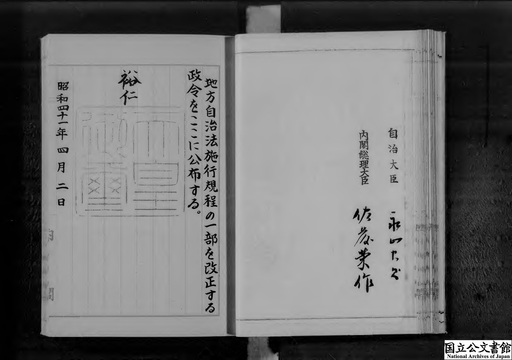 自治大臣
永山忠則
内閣総理大臣
佐藤栄作
地方自治法施行規程の一部を改正する
政令をここに公布する。
裕仁
天皇
御璽
昭和四十一年四月二日
国立公文書館
National Archives of Japan